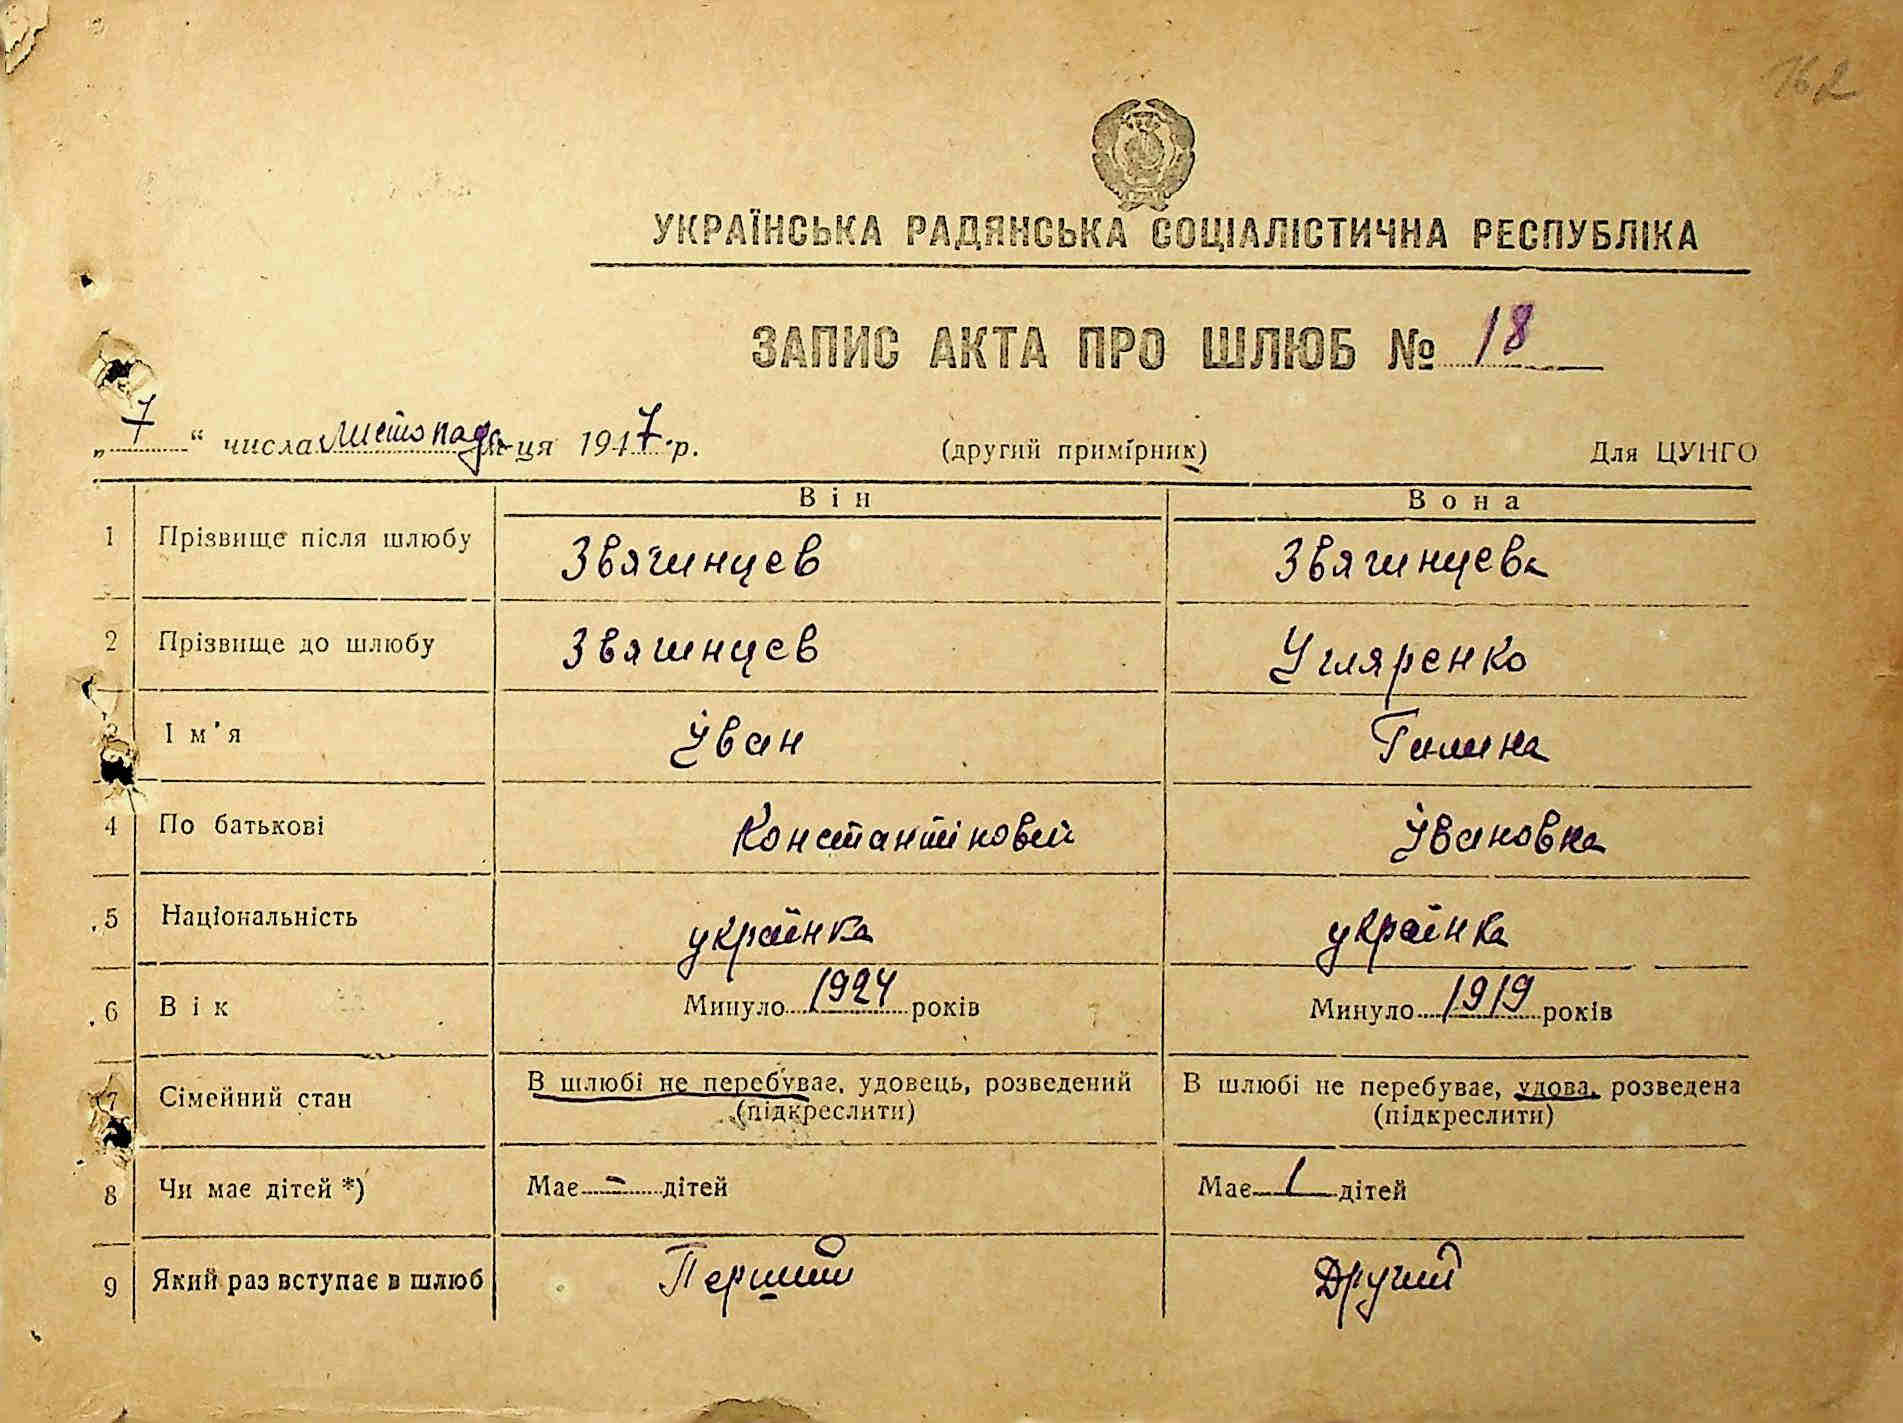 162
УКРАЇНСЬКА РАДЯНСЬКА СОЦІАЛІСТИЧНА РЕСПУБЛІКА
ЗАПИС АКТА ПРО ШЛЮБ № 18
„ 7 “ числа листопада м-ця 1947 р. (другий примірник) Для ЦУНГО
Він Вона
1 Прізвище після шлюбу Звягинцев Звягинцева
2 Прізвище до шлюбу Звягинцев Угляренко
3 Ім'я Іван Галина
4 По батькові Константіновий Івановна
5 Національність українка українка
6 Вік Минуло 1924 років Минуло 1919 років
7 Сімейний стан В шлюбі не перебуває, удовець, розведений (підкреслити) В шлюбі не перебуває, удова, розведена (підкреслити)
8 Чи має дітей *) Має - дітей Має 1 дітей
9 Який раз вступає в шлюб Перший Другий